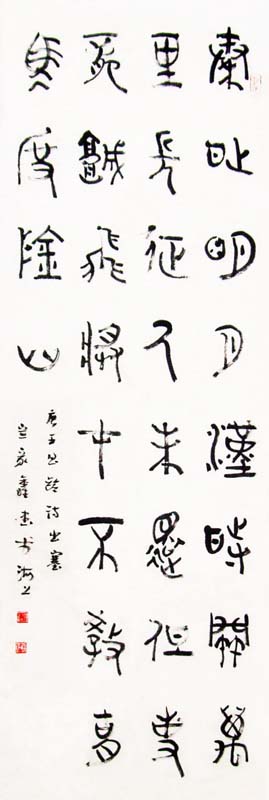 秦時明月漢時關萬
里長征人未還但使
龍城飛將在不教胡
馬度陰山
唐王昌齡詩出塞
家鑫書於海上